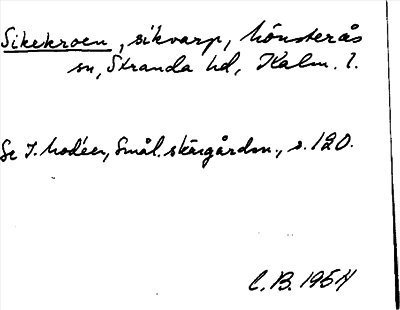 Sikekroen, sikvarp, Mönsterås
sn, Stranda hd, Kalm. l.
Se I. Modéer, Smål. skärgårdsn., s. 120.
C. B. 1954